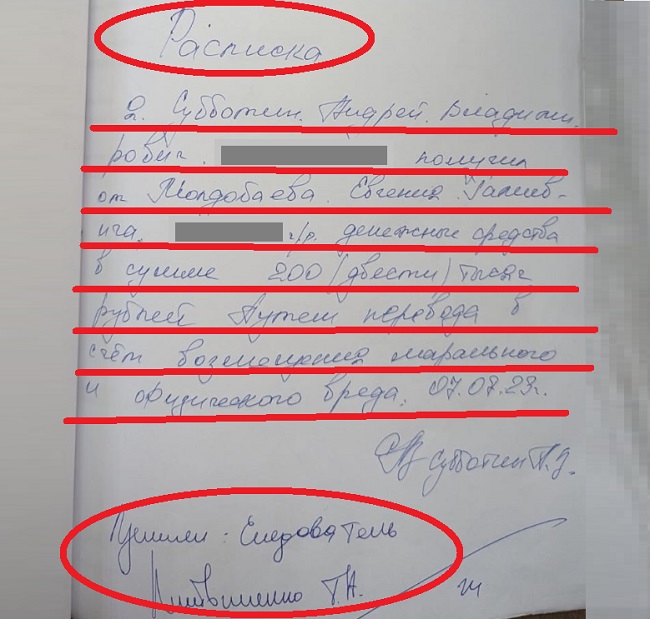 Расписка
Я. Субботин. Андрей. Владими.
рович. получил
от Молдобаева. Евгения Галиев-
ича. г/р. денежные средства
в сумме 200 (двести) тысяч
рублей Путем перевода в
счёт возмещения марального
и физического вреда. 07.07.23г.
Субботин А.
Принял: Следователь
Литвиненко Т.А.